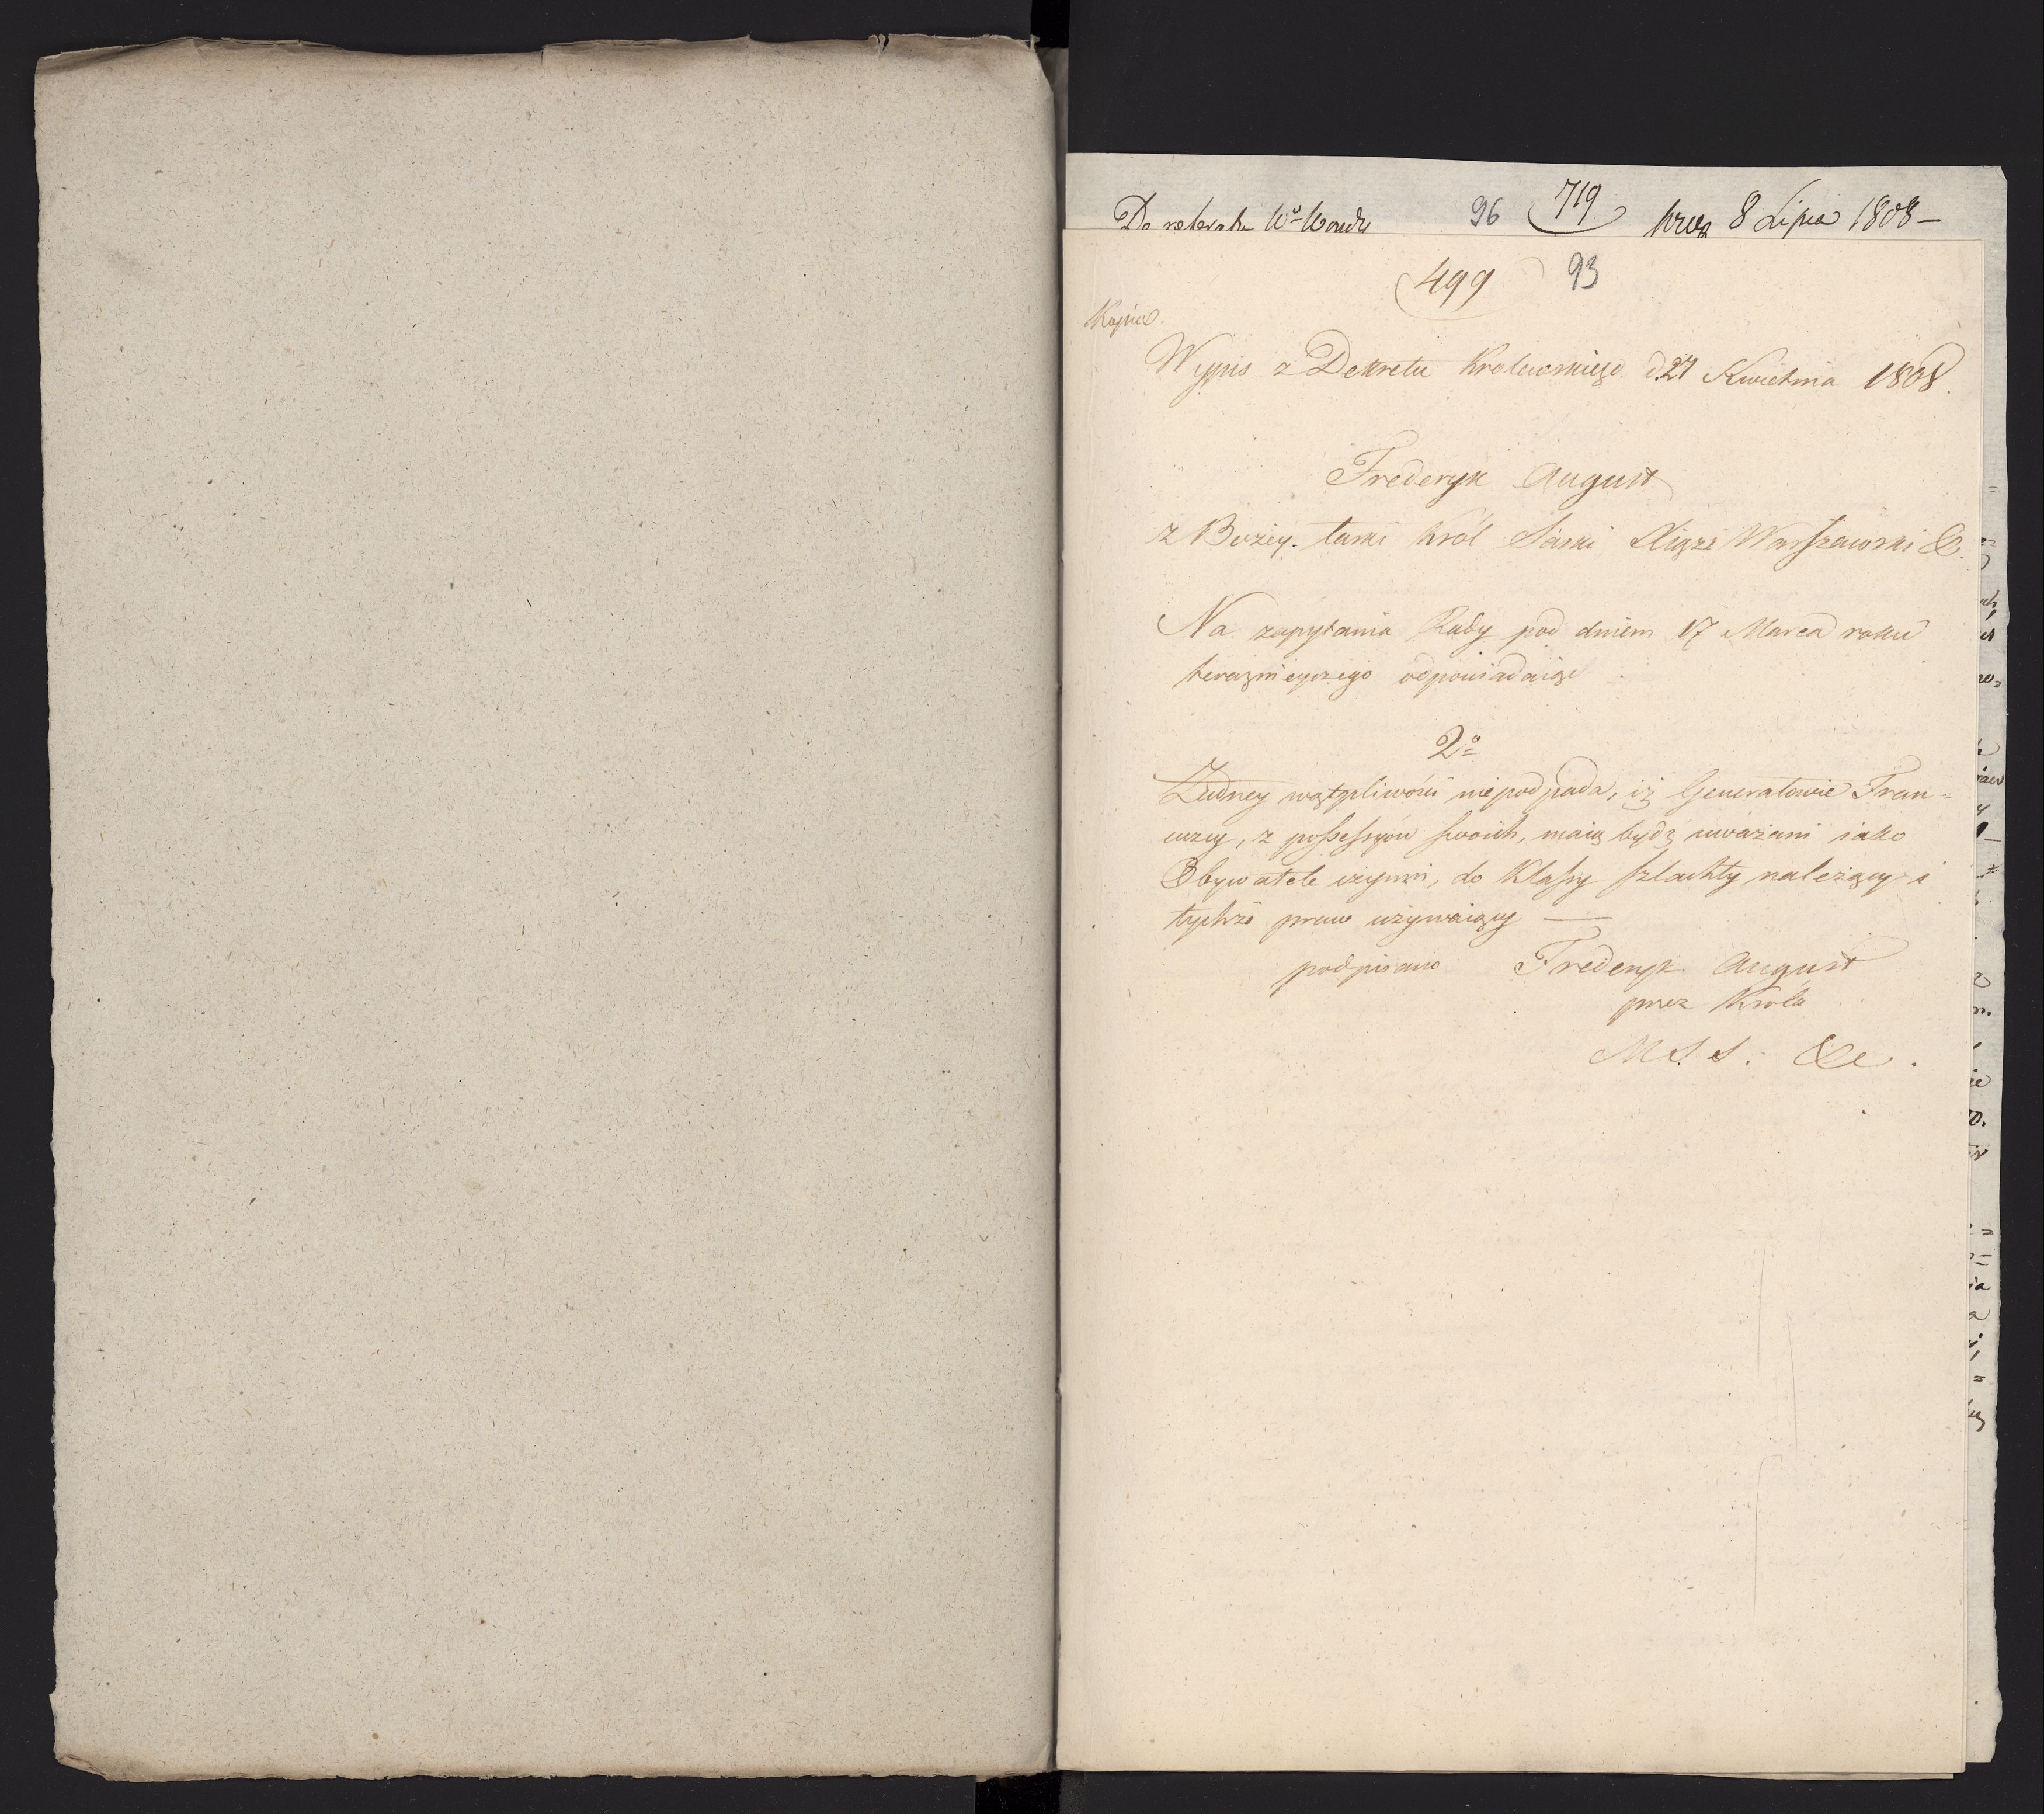 Do referatu
96
719
8 Lipca 1808 –
499
93
Kopia.
Wypis z Dekretu Krolewskiego d. 27 Kwietnia 1808.
Frederyk August
z Bożey łaski Król Saski Xiąże Warszawski &.
Na zapytania Rady pod dniem 17 Marca roku
teraznieyszego odpowiadaiąc
2º
Żadney wątpliwości niepodpada, iż Generałowie Fran=
cuzcy, z possessyów swoich, maią bydź uważani iako
Obywatele czynni, do Klassy szlachty należący i
tychże praw używaiący —
podpisano Frederyk August
przez Króla
M. S. S. &c.